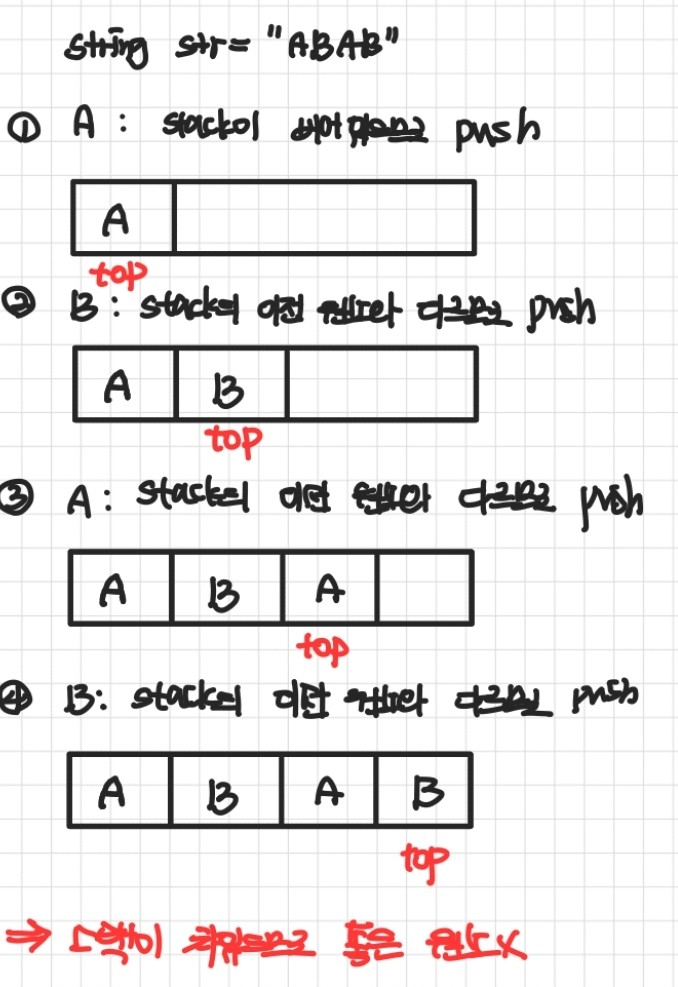 string str = "ABAB"
① A : stack이 비어있으므로 push
A
top
② B : stack의 이전 원소와 다르므로 push
A B
top
③ A : stack의 이전 원소와 다르므로 push
A B A
top
④ B : stack의 이전 원소와 다르므로 push
A B A B
top
⇒ 스택이 좋은 단어 X